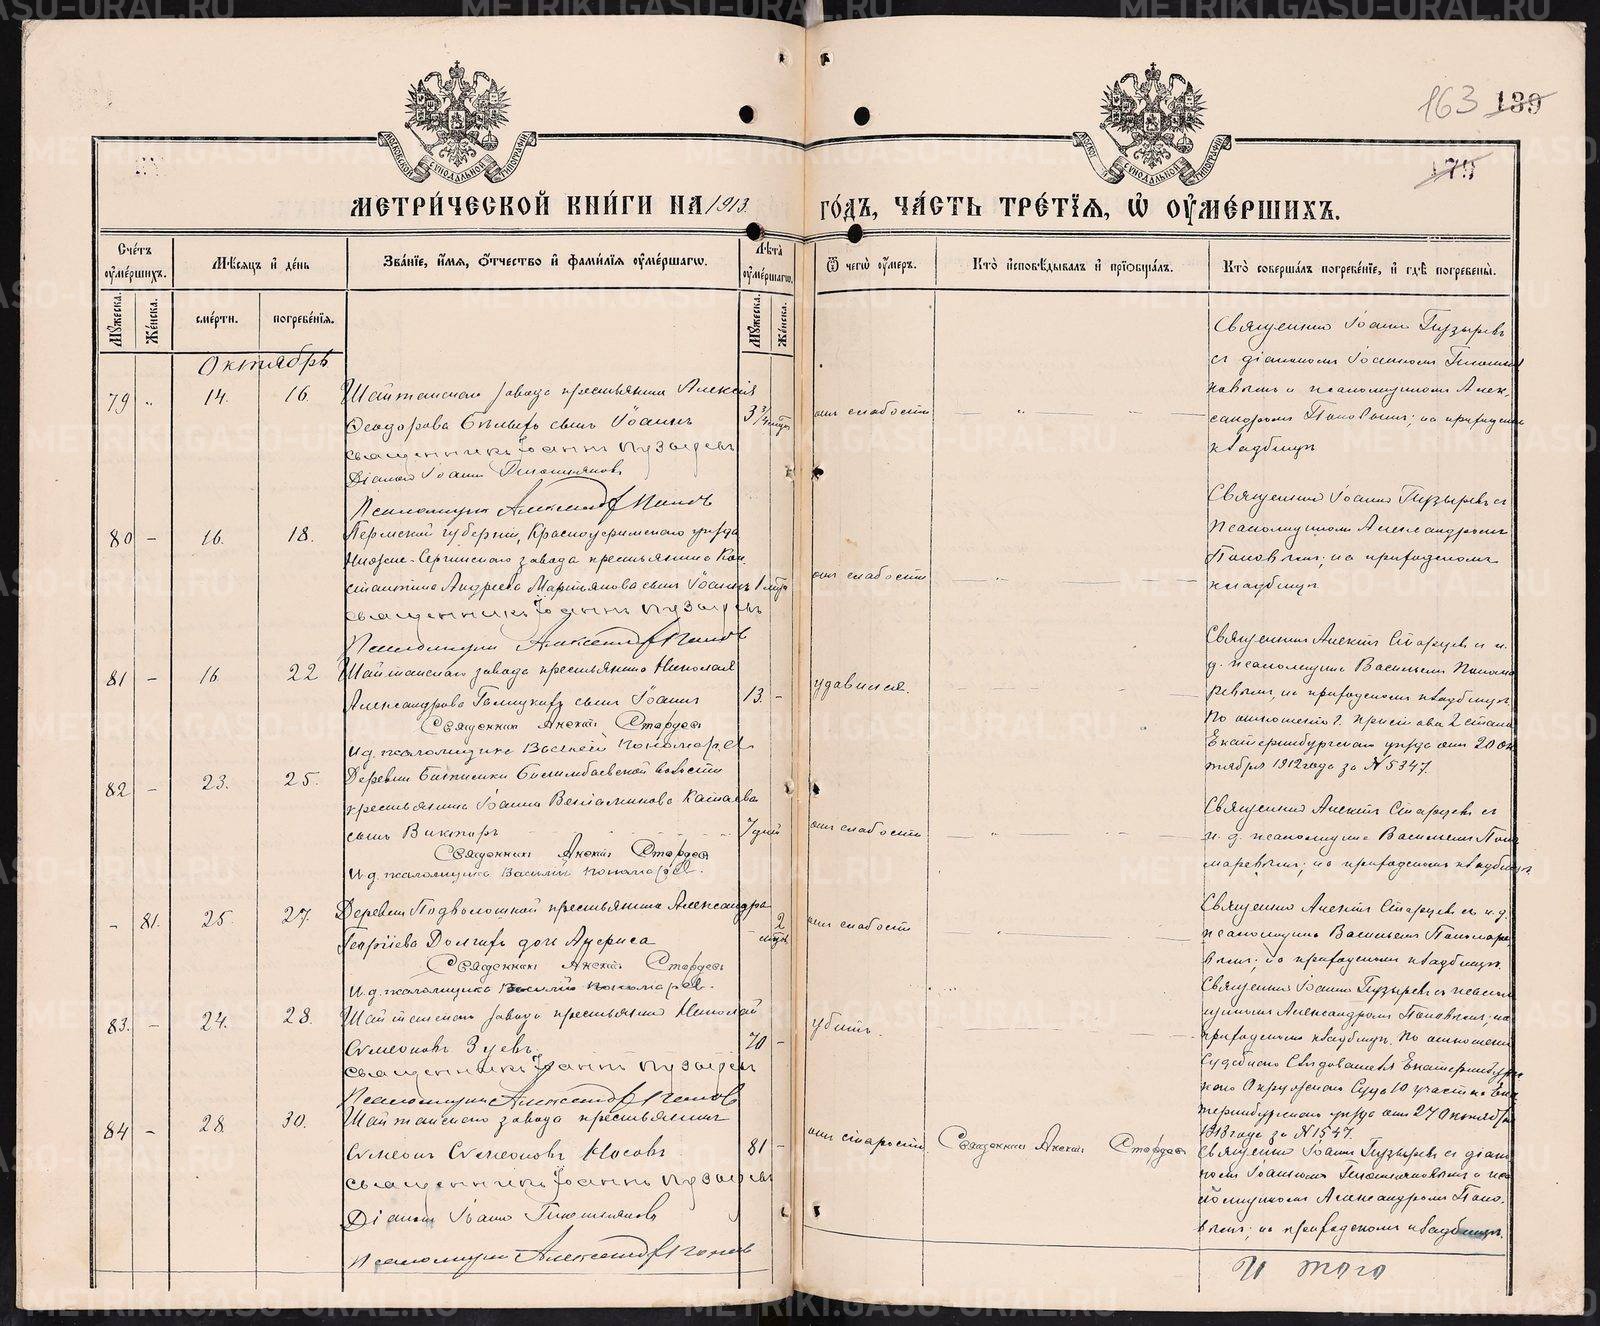 163 139
179
МЕТРИ́ЧЕСКОЙ КНИ́ГИ НА 1913 ГО́ДЪ, ЧА́СТЬ ТРЕ́ТІЯ, Ѡ ОУ҆МЕ́РШИХЪ.
Сче́тъ оу҆ме́ршихъ.
Мѣсяцъ и де́нь
Зва́ніе, и҆́мя, о҆́тчество и҆ фами́лія оу҆ме́ршагѡ.
Лѣ́та оу҆ме́ршагѡ.
Ѿ чегѡ̀ оу҆́меръ.
Кто̀ и҆сповѣ́дывалъ и҆ прїѻбща́лъ.
Кто̀ соверша́лъ погребе́ніе, и҆ гдѣ̀ погребены̀.
Му́жеска.
Же́нска.
сме́рти.
погребе́нія.
Му́жеска.
Же́нска.
Октябрь
79 " 14. 16. Шайтанскаго завода крестьянина Алексія
Ѳеодорова сынъ Іоаннъ
3¾ от слабости
Священникъ Іоаннъ Пузыревъ
Діаконъ Іоаннъ
Псаломщикъ Александръ Поповъ
Священникъ Іоаннъ Пузыревъ
съ діакономъ Іоанномъ
и псаломщикомъ Алек-
сандромъ Поповымъ; на приходском
кладбищѣ
80 - 16. 18. Пермской губерніи, Красноуфимскаго уѣзда
Нижне-Сергинскаго завода крестьянина Кон-
стантина Андреева Мартьянова сынъ Іоаннъ
от слабости
Священникъ Іоаннъ Пузыревъ
Псаломщикъ Александръ Поповъ
Священникъ Іоаннъ Пузыревъ съ
псаломщикомъ Александромъ
Поповымъ; на приходскомъ
кладбищѣ
81 - 16 22 Шайтанскаго завода крестьянина Николая
Александрова сынъ Іоаннъ
13. - удавился.
Священникъ Алексій Старцевъ
И. д. псаломщика Василій Пономаревъ
Священникъ Алексій Старцевъ и и.
д. псаломщика Василіемъ Понома
ревымъ, на приходскомъ кладбищѣ
По отношенію г. пристава 2 стана
Екатеринбургскаго уѣзда отъ 20 ок
тября 1912 года за № 5347.
82 - 23. 25. Деревни Билимбаевской волости
крестьянина Іоанна Веніаминова Катаева
сынъ Викторъ
7 дней от слабости
Священникъ Алексій Старцевъ
И. д. псаломщика Василій Пономаревъ.
Священникъ Алексій Старцевъ съ
и. д. псаломщика Василіемъ Поно
маревымъ; на приходскомъ кладбищѣ
- 81. 25 27. Деревни Подволошной крестьянина Александра
Георгіева Долгихъ дочь
2 от слабости
Священникъ Алексій Старцевъ
И. д. псаломщика Василій Пономаревъ.
Священникъ Алексій Старцевъ съ и. д.
псаломщика Василіемъ Понома
вымъ; на приходскомъ кладбищѣ.
83. - 24. 28. Шайтанскаго завода крестьянинъ Николай
Симеоновъ Зуевъ.
70 - убитъ.
Священникъ Іоаннъ Пузыревъ
Псаломщикъ Александръ Поповъ
Священникъ Іоаннъ Пузыревъ съ псалом
щикомъ Александромъ Поповымъ; на
приходскомъ кладбищѣ. По отношенію
Судебнаго Слѣдователя Екатеринбург
скаго Окружного Суда 10 участка Ека
теринбургскаго уѣзда отъ 27 октября
1913 года за № 1547.
84 - 28 30. Шайтанскаго завода крестьянинъ
Симеонъ Симеоновъ Носовъ
81 - от старости Священникъ Алексій Старцевъ
Священникъ Іоаннъ Пузыревъ
Діаконъ Іоаннъ
Псаломщикъ Александръ Поповъ
Священникъ Іоаннъ Пузыревъ съ діако
номъ Іоанномъ и пса
ломщикомъ Александромъ Попо-
вымъ; на приходскомъ кладбищѣ.
Итого